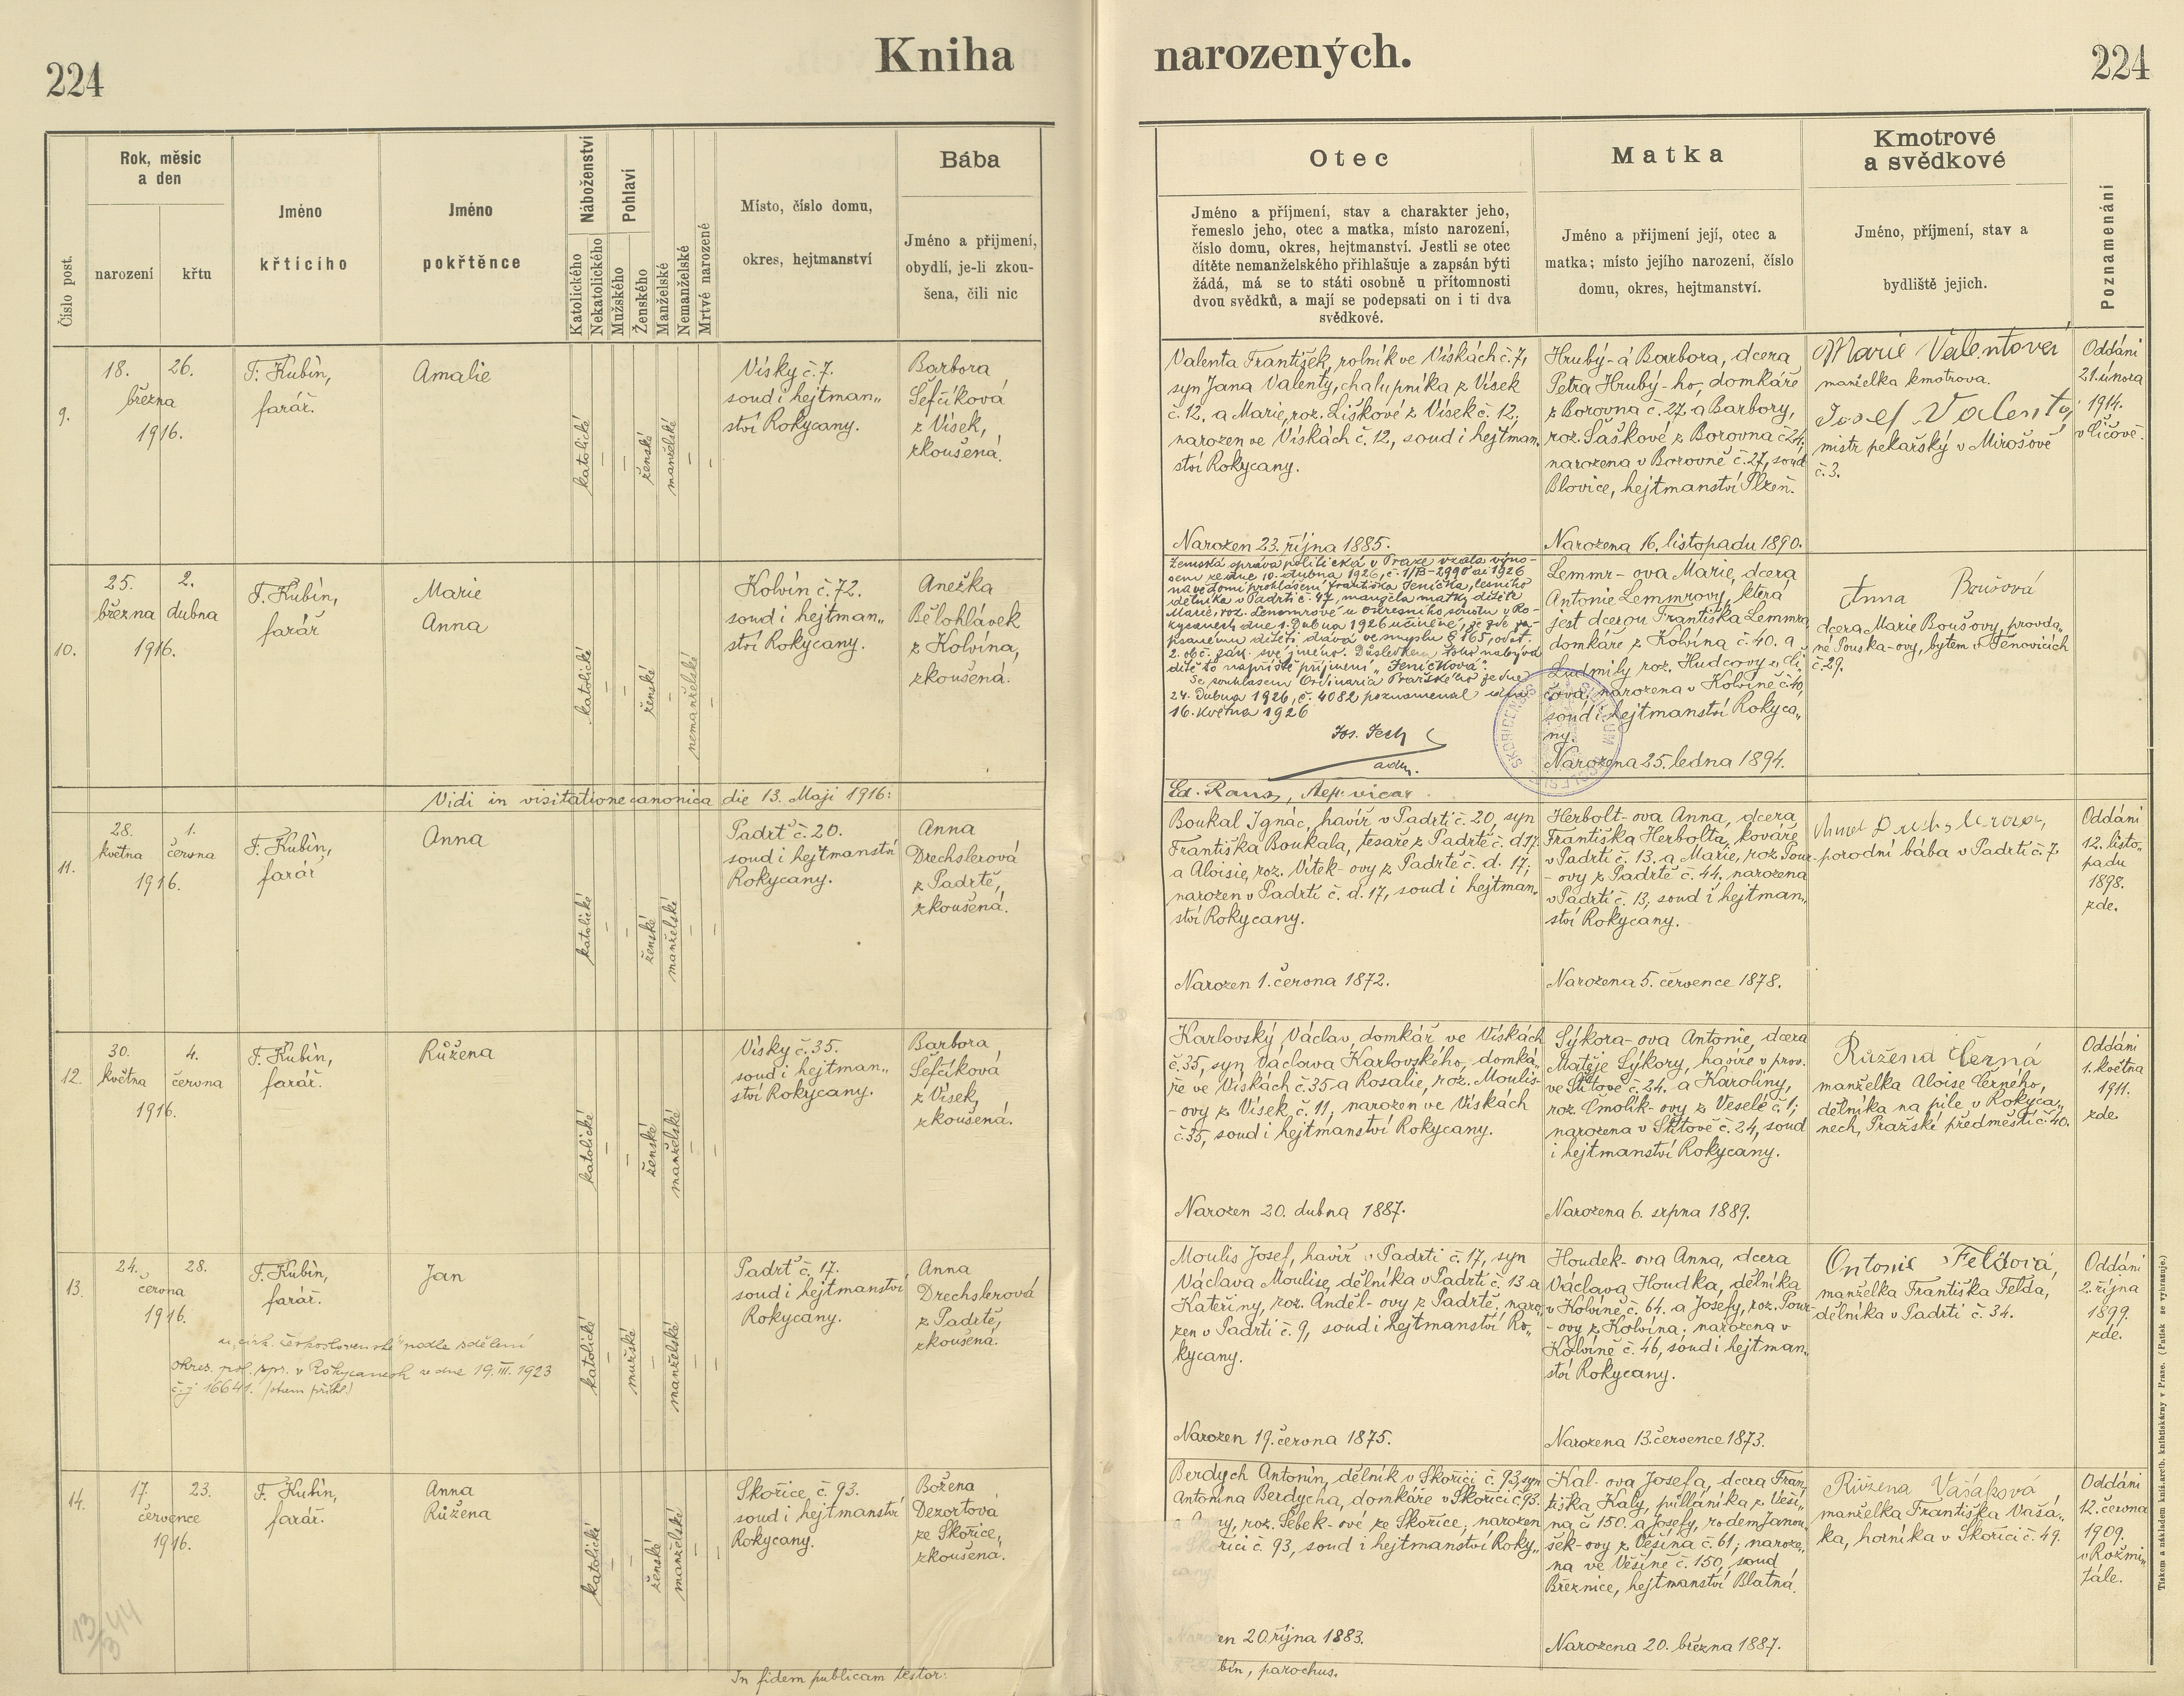 224
Kniha
narozených.
224
Číslo post.
Rok, měsíc
a den
narození
křtu
Jméno
křtícího
Jméno
pokřtěnce
Náboženství
Katolického
Nekatolického
Pohlaví
Mužského
Ženského
Manželské
Nemanželské
Mrtvě narozené
Místo, číslo domu,
okres, hejtmanství
Bába
Jméno a přijmení,
obydlí, je-li zkou-
šena, čili nic
Otec
Jméno a příjmení, stav a charakter jeho,
řemeslo jeho, otec a matka, místo narození,
číslo domu, okres, hejtmanství. Jestli se otec
dítěte nemanželského přihlašuje a zapsán býti
žádá, má se to státi osobně u přítomnosti
dvou svědků, a mají se podepsati on i ti dva
svědkové.
Matka
Jméno a přijmení její, otec a
matka; místo jejího narození, číslo
domu, okres, hejtmanství.
Kmotrové
a svědkové
Jméno, příjmení, stav a
bydliště jejich.
Poznamenání
9.
18. 26.
března
1916.
F. Kubín,
farář.
Amalie
katolické
–
–
ženské
manželské
–
Vísky č. 7.
soud i hejtman„
ství Rokycany.
Barbora
Šefčíková
z Vísek,
zkoušená.
Valenta František, rolník ve Vískách č. 7,
syn Jana Valenty, chalupníka z Vísek
č. 12, a Marie, roz. Liškové z Vísek č. 12,
narozen ve Vískách č. 12, soud i hejtman„
ství Rokycany.
Narozen 23. října 1885.
Hrubý-á Barbora, dcera
Petra Hrubý-ho, domkáře
z Borovna č. 27, a Barbory,
roz. Šaškové z Borovna č. 24,
narozena v Borovně č. 27, soud
Blovice, hejtmanství Plzeň.
Narozena 16. listopadu 1890.
Marie Valentová
manželka kmotrova.
Josef Valenta
mistr pekařský v Mirošově
č. 3.
Oddáni
21. února
1914.
v Číčově.
10.
25. 2.
března dubna
1916.
F. Kubín,
farář
Marie
Anna
katolické
–
–
ženské
–
nemanželské
–
Kolvín č. 72.
soud i hejtman„
ství Rokycany.
Anežka
Bělohlávek
z Kolvína,
zkoušená.
Zemská správa politická v Praze vzala výno-
sem ze dne 10. dubna 1926, č. 1/B-2990 ai 1926
na vědomí prohlášení Františka Jeníčka, lesního
dělníka v Padrti č. 47, manžela matky dítěte
Marie, roz. Lemmrové u okresního soudu v Ro-
kycanech dne 1. dubna 1926 učiněné, že zde za-
psanému dítěti dává ve smyslu § 165, odst.
2. ob č. zák. své jméno. Důsledkem toho nabývá
dítě to napříště příjmení „Jeníčková".
Se souhlasem Ordinaria Pražského ze dne
24. dubna 1926, č. 4082 poznamenal dne
16. května 1926
Jos. Tesh
adm.
Lemmr-ova Marie, dcera
Antonie Lemmrovy, která
jest dcerou Františka Lemmra
domkáře z Kolvína č. 40. a
Ludmily roz. Hudcovy z Čí-
čova, narozena v Kolvíně č. 40,
soud i hejtmanství Rokyca„
ny.
Narozena 25. ledna 1894.
Anna Boušová
dcera Marie Boušovy, provda„
né Pouska-ovy, bytem v Těnovicích
č. 29.
Vidi in visitatione canonica die 13. Maji 1916:
Ed. Rans, Aep. vicar
11.
28. 1.
května června
1916.
F. Kubín,
farář
Anna
katolické
–
–
ženské
manželské
–
–
Padrť č. 20.
soud i hejtmanství
Rokycany.
Anna
Drechslerová
z Padrtě,
zkoušená.
Boukal Ignác, havíř v Padrti č. 20, syn
Františka Boukala, tesaře z Padrtě č. d 17.
a Aloisie, roz. Vítek-ovy z Padrtě č. d. 17;
narozen v Padrti č. d. 17, soud i hejtman„
ství Rokycany.
Narozen 1. června 1872.
Herbolt-ova Anna, dcera
Františka Herbolta, kováře
v Padrti č. 13, a Marie, roz. Pour-
-ovy z Padrtě č. 44, narozena
v Padrti č. 13, soud i hejtman„
ství Rokycany.
Narozena 5. července 1878.
porodní bába v Padrti č. 7.
Oddáni
12. listo„
padu
1898.
zde.
12.
30. 4.
května června
1916.
F. Kubín,
farář.
Růžena
katolické
–
–
ženské
manželské
–
–
Vísky č. 35.
soud i hejtman„
ství Rokycany.
Barbora
Šefčíková
z Vísek,
zkoušená.
Karlovský Václav, domkář ve Vískách
č. 35, syn Václava Karlovského, domká„
ře ve Vískách č. 35 a Rosalie, roz. Moulis-
-ovy z Vísek č. 11, narozen ve Vískách
č. 35, soud i hejtmanství Rokycany.
Narozen 20. dubna 1887.
Sýkora-ova Antonie, dcera
Matěje Sýkory, havíře v prov.
ve Štítově č. 24. a Karoliny,
roz. Čmolík-ovy z Veselé č. 1;
narozena v Štítově č. 24, soud
i hejtmanství Rokycany.
Narozena 6. srpna 1889.
Růžena Černá
manželka Aloise Černého,
dělníka na pile v Rokyca„
nech, Pražské předměstí č. 40.
Oddáni
1. května
1911.
zde.
13.
24. 28.
června
1916.
F. Kubín,
farář.
Jan
„círk. československé" podle sdělení
okres. pol. spr. v Rokycanech ze dne 19. III. 1923
č. j 16641.
katolické
–
mužské
–
manželské
–
–
Padrť č. 17.
soud i hejtmanství
Rokycany.
Anna
Drechslerová
z Padrtě,
zkoušená.
Moulis Josef, havíř v Padrti č. 17, syn
Václava Moulise, dělníka v Padrti č. 13 a
Kateřiny, roz. Anděl-ovy z Padrtě, naro„
zen v Padrti č. 9, soud i hejtmanství Ro„
kycany.
Narozen 19. června 1875.
Houdek-ova Anna, dcera
Václava Houdka, dělníka
v Kolvíně č. 64. a Josefy, roz. Pour-
-ovy z Kolvína; narozena v
Kolvíně č. 46, soud i hejtman„
ství Rokycany.
Narozena 13. července 1873.
Antonie Feldová,
manželka Františka Felda,
dělníka v Padrti č. 34.
Oddáni
2. října
1899.
zde.
14.
17. 23.
července
1916.
F. Kubín,
farář.
Anna
Růžena
katolické
–
–
ženské
manželské
–
–
Skořice, č. 93.
soud i hejtmanství
Rokycany.
Božena
Dezortová
ze Skořice,
zkoušená.
Berdych Antonín, dělník v Skořici č. 93, syn
Antonína Berdycha, domkáře v Skořici č. 93.
a ny, roz. Šebek-ové ze Skořice; narozen
v Skořici č. 93, soud i hejtmanství Roky„
cany.
Narozen 20. října 1883.
Kal-ova Josefa, dcera Fran„
tiška Kaly, půlláníka z Věší„
na č. 150. a Josefy, rodem Janou„
šek-ovy z Věšína č. 61; naroze„
na ve Věšíně č. 150, soud
Březnice, hejtmanství Blatná.
Narozena 20. března 1887.
Růžena Vašáková
manželka Františka Vašá„
ka, horníka v Skořici č. 49.
Oddáni
12. června
1909.
v Rožmi„
tále.
13/3 44
In fidem publicam testor:
bín, parochus.
Tiskem a nákladem kníž.arcib. knihtiskárny v Praze. (Patisk se vyhrazuje.)